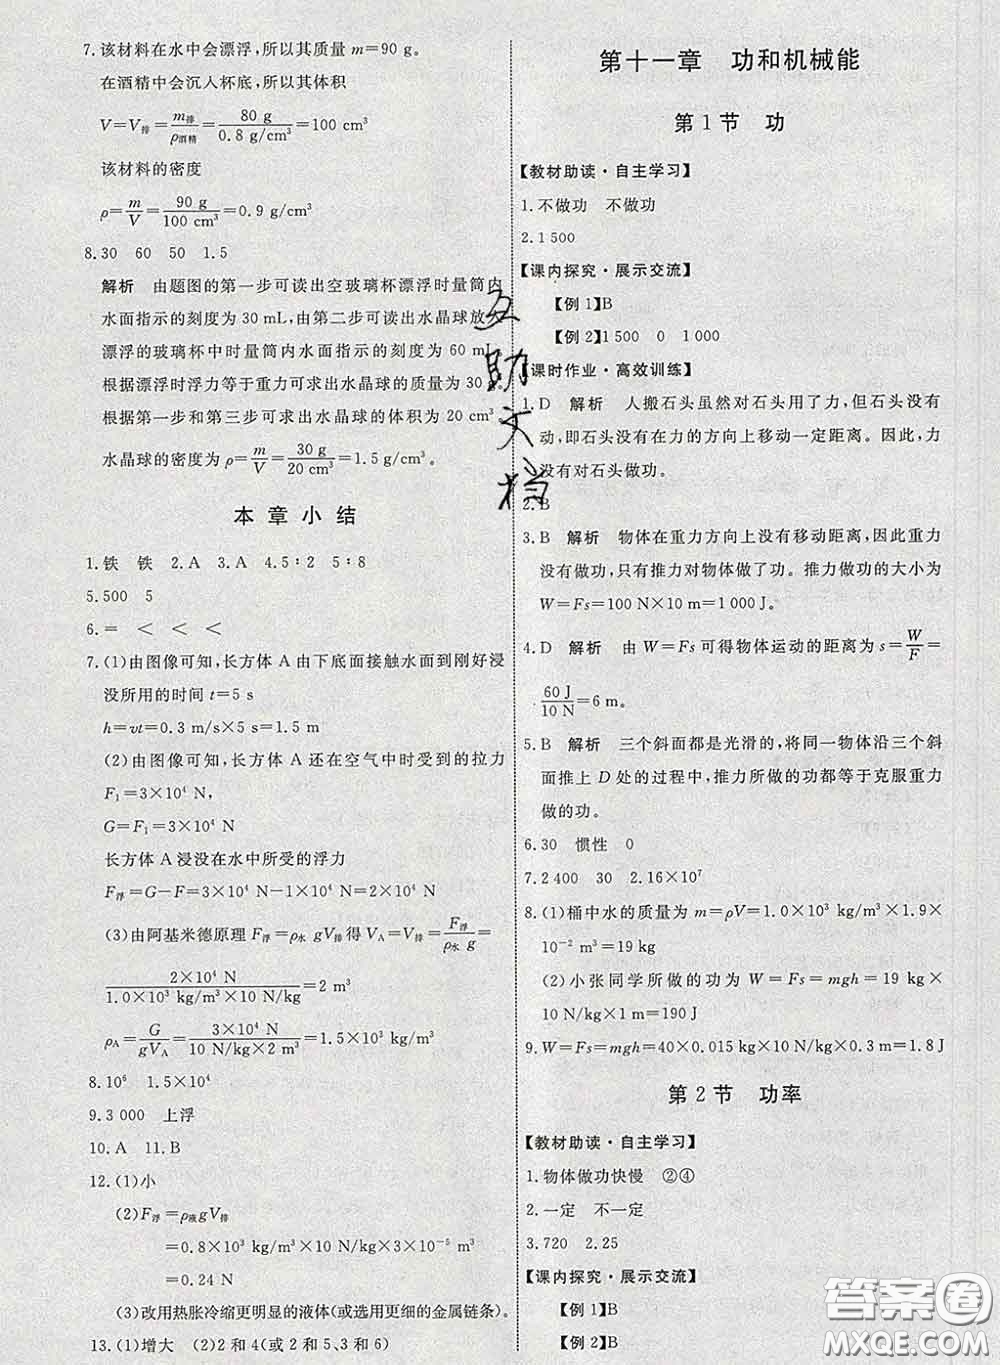 7.该材料在水中会漂浮,所以其质量 m=90 g。
在酒精中会沉入杯底,所以其体积
V=V排=m排/ρ酒精=80 g/0.8 g/cm³=100 cm³
该材料的密度
ρ=m/V=90 g/100 cm³=0.9 g/cm³
8.30 60 50 1.5
解析 由题图的第一步可读出空玻璃杯漂浮时量筒内
水面指示的刻度为 30 mL,由第二步可读出水晶球放入
漂浮的玻璃杯中时量筒内水面指示的刻度为 60 mL
根据漂浮时浮力等于重力可求出水晶球的质量为 30 g。
根据第一步和第三步可求出水晶球的体积为 20 cm³
水晶球的密度为 ρ=m/V=30 g/20 cm³=1.5 g/cm³。
本章小结
1.铁 铁 2.A 3.A 4.5∶2 5∶8
5.500 5
6.= < < <
7.(1)由图像可知,长方体 A 由下底面接触水面到刚好浸
没所用的时间 t=5 s
h=vt=0.3 m/s×5 s=1.5 m
(2)由图像可知,长方体 A 还在空气中时受到的拉力
F₁=3×10⁴ N,
G=F₁=3×10⁴ N
长方体 A 浸没在水中所受的浮力
F浮=G-F=3×10⁴ N-1×10⁴ N=2×10⁴ N
(3)由阿基米德原理 F浮=ρ水 gV排得 VA=V排=F浮/ρ水 g=
2×10⁴ N/1.0×10³ kg/m³×10 N/kg=2 m³
ρA=G/gVA=3×10⁴ N/10 N/kg×2 m³=1.5×10³ kg/m³
8.10⁶ 1.5×10⁴
9.3 000 上浮
10.A 11.B
12.(1)小
(2)F浮=ρ液gV排
=0.8×10³ kg/m³×10 N/kg×3×10⁻⁵ m³
=0.24 N
(3)改用热胀冷缩更明显的液体(或选用更细的金属链条)。
13.(1)增大 (2)2 和 4(或 2 和 5、3 和 6)
第十一章 功和机械能
第 1 节 功
【教材助读·自主学习】
1.不做功 不做功
2.1 500
【课内探究·展示交流】
【例 1】B
【例 2】1 500 0 1 000
【课时作业·高效训练】
1.D 解析 人搬石头虽然对石头用了力,但石头没有
动,即石头没有在力的方向上移动一定距离。因此,力
没有对石头做功。
2.B
3.B 解析 物体在重力方向上没有移动距离,因此重力
没有做功,只有推力对物体做了功。推力做功的大小为
W=Fs=100 N×10 m=1 000 J。
4.D 解析 由 W=Fs 可得物体运动的距离为 s=W/F=
60 J/10 N=6 m。
5.B 解析 三个斜面都是光滑的,将同一物体沿三个斜
面推上 D 处的过程中,推力所做的功都等于克服重力
做的功。
6.30 惯性 0
7.2 400 30 2.16×10⁷
8.(1)桶中水的质量为 m=ρV=1.0×10³ kg/m³×1.9×
10⁻² m³=19 kg
(2)小张同学所做的功为 W=Fs=mgh=19 kg×
10 N/kg×1 m=190 J
9.W=Fs=mgh=40×0.015 kg×10 N/kg×0.3 m=1.8 J
第 2 节 功率
【教材助读·自主学习】
1.物体做功快慢 ②④
2.一定 不一定
3.720 2.25
【课内探究·展示交流】
【例 1】B
【例 2】B
互助文档
答案圈
MXQE.COM